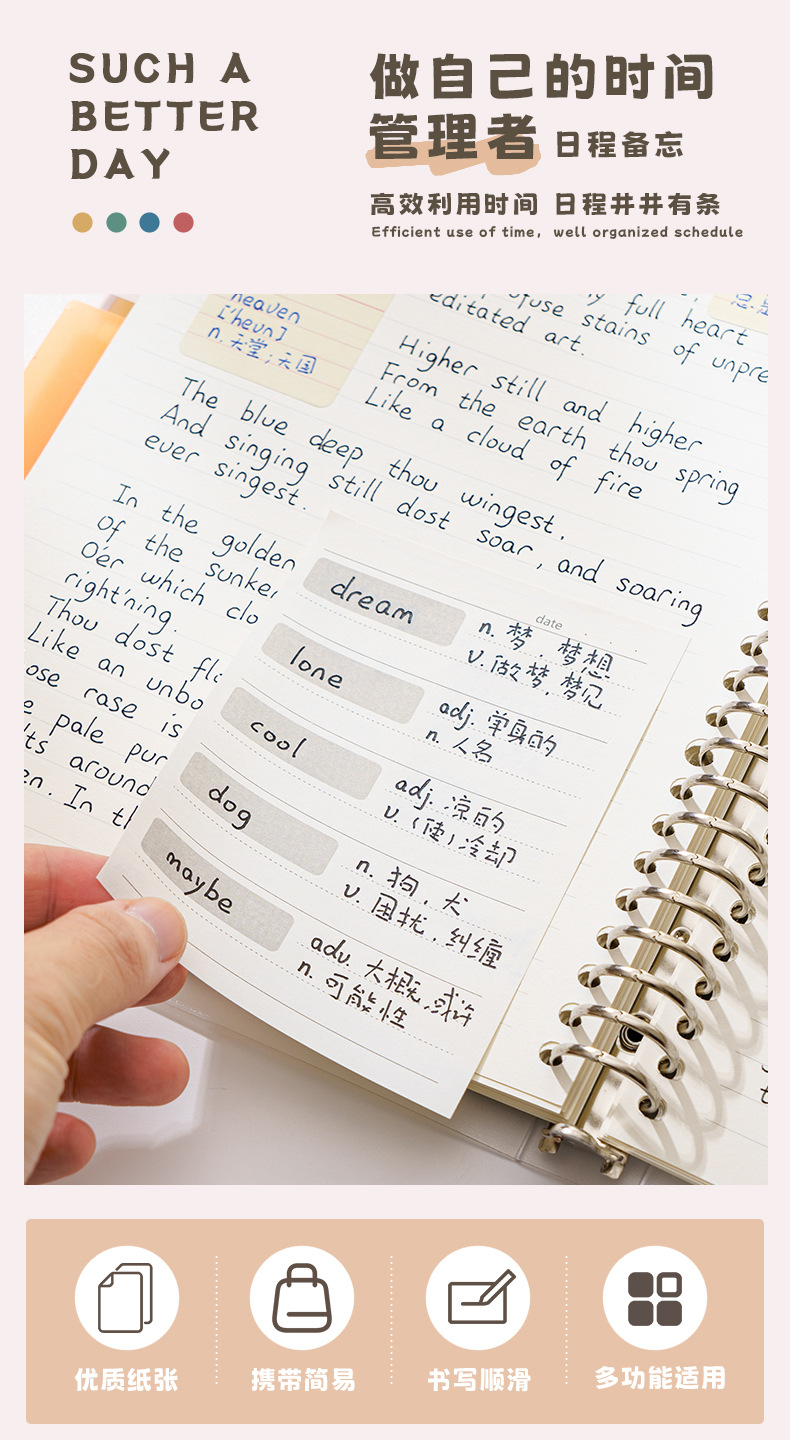 SUCH A
BETTER
DAY
做自己的时间
管理者 日程备忘
高效利用时间 日程井井有条
Efficient use of time, well organized schedule
heaven
['heun]
n. 天堂;天国
full heart
stains of unpre
editated art.
Higher still and higher
From the earth thou spring
Like a cloud of fire
The blue deep thou wingest,
And singing still dost soar, and soaring
ever singest.
In the golden
Of the sunken
O'er which clo
right'ning.
Thou dost flo
Like an unbo
ose rase is
pale pur
ts around
en. In th
date
dream
n. 梦, 梦想
v. 做梦, 梦见
lone
adj. 单身的
n. 人名
cool
adj. 凉的
v. (使)冷却
dog
n. 狗, 犬
v. 困扰, 纠缠
maybe
adv. 大概, 或许
n. 可能性
优质纸张
携带简易
书写顺滑
多功能适用